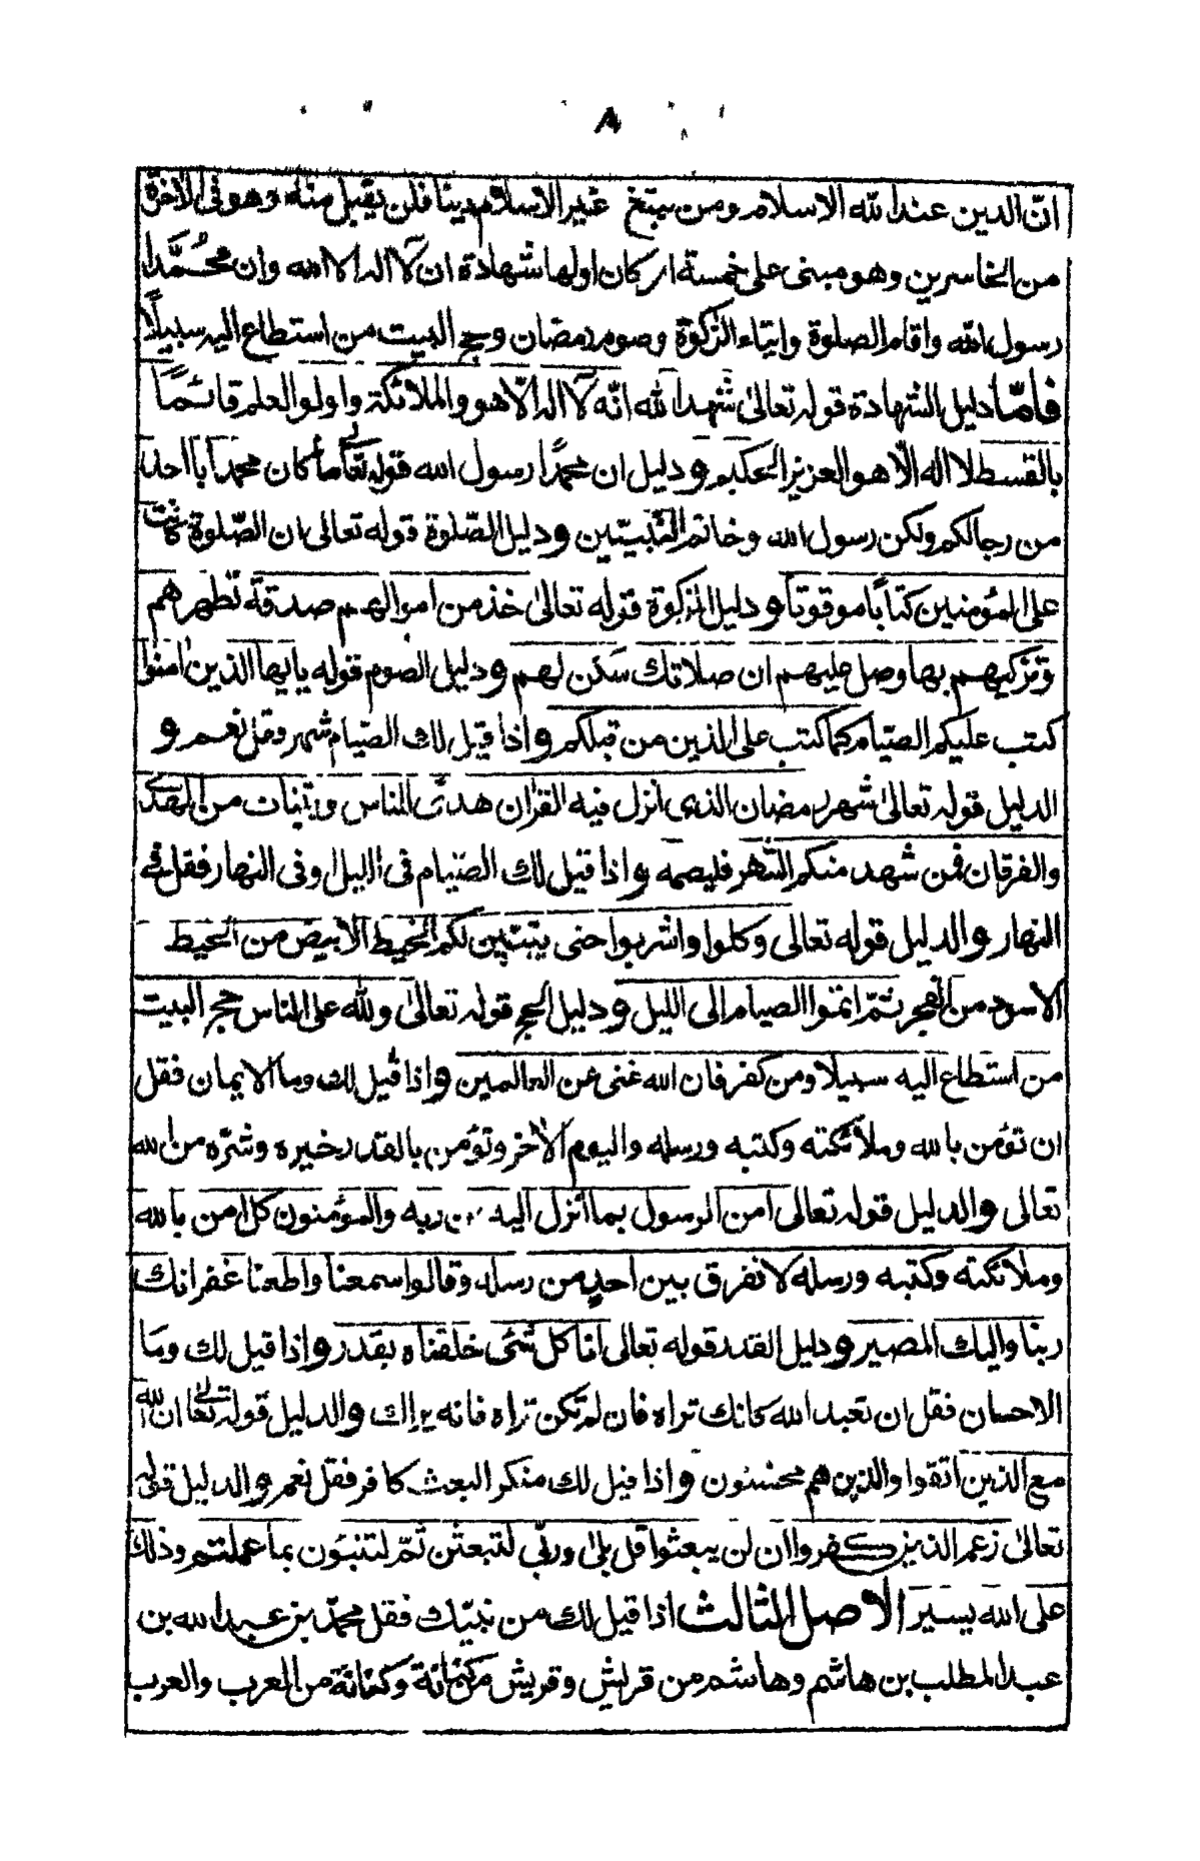 ٨
انّ الدين عند الله الاسلام ومن يبتغ غير الاسلام دينا فلن يقبل منه وهو فى الاخرة
من الخاسرين وهو مبنى على خمسة اركان اولها شهادة ان لآ اله الا الله وان محُمَّدا
رسول الله واقام الصلوة وايتاء الزكوة وصوم رمضان وحج البيت من استطاع اليه سبيلًا
فامّا دليل الشهادة قوله تعالىٰ شهد الله انّه لآ اله الّا هو والملائكة واولو العلم قائمًا
بالقسط لا اله الّا هو العزيز الحكيم و دليل ان محمدًا رسول الله قوله تعالى ما كان محمد ابا احد
من رجالكم ولكن رسول الله وخاتم النبيّين و دليل الصّلوة قوله تعالى ان الصّلوة كانت
على المؤمنين كتابًا موقوتا و دليل الزكوة قوله تعالىٰ خذ من اموالهم صدقة تطهرهم
وتزكيهم بها وصل عليهم ان صلاتك سكن لهم و دليل الصوم قوله يايها الذين امنوا
كتب عليكم الصيام كما كتب على الذين من قبلكم و اذا قيل لك الصيام شهر وقل نعم و
الدليل قوله تعالىٰ شهر رمضان الذى انزل فيه القران هدًى للناس وبينات من الهدى
والفرقان فمن شهد منكم الشهر فليصمه و اذا قيل لك الصيام فى الليل او فى النهار فقل فى
النهار و الدليل قوله تعالى وكلوا واشربوا حتى يتبين لكم الخيط الابيض من الخيط
الاسود من الفجر ثمّ اتموا الصيام الى الليل و دليل الحج قوله تعالىٰ ولله على الناس حج البيت
من استطاع اليه سبيلا ومن كفر فان الله غنى عن العالمين و اذا قيل لك وما الايمان فقل
ان تؤمن بالله وملائكته وكتبه ورسله واليوم الاٰخر وتؤمن بالقدر خيره وشرّه من الله
تعالى و الدليل قوله تعالى امن الرسول بما انزل اليه من ربه والمؤمنون كل امن بالله
وملائكته وكتبه ورسله لا نفرق بين احدٍ من رسله وقالوا سمعنا واطعنا غفرانك
ربنا واليك المصير و دليل القدر قوله تعالى انا كل شئى خلقناه بقدر و اذا قيل لك وما
الاحسان فقل ان تعبد الله كانك تراه فان لم تكن تراه فانه يراك و الدليل قوله تعالى ان الله
مع الذين اتقوا والذين هم محسنون و اذا قيل لك منكر البعث كافر فقل نعم و الدليل قوله
تعالىٰ زعم الذين كفروا ان لن يبعثوا قل بلىٰ وربّى لتبعثن ثمّ لتنبئون بما عملتم وذلك
على الله يسير الاصل الثالث اذا قيل لك من نبيّك فقل محمّد بن عبد الله بن
عبد المطلب بن هاشم وهاشم من قريش وقريش من كنانة وكنانة من العرب والعرب